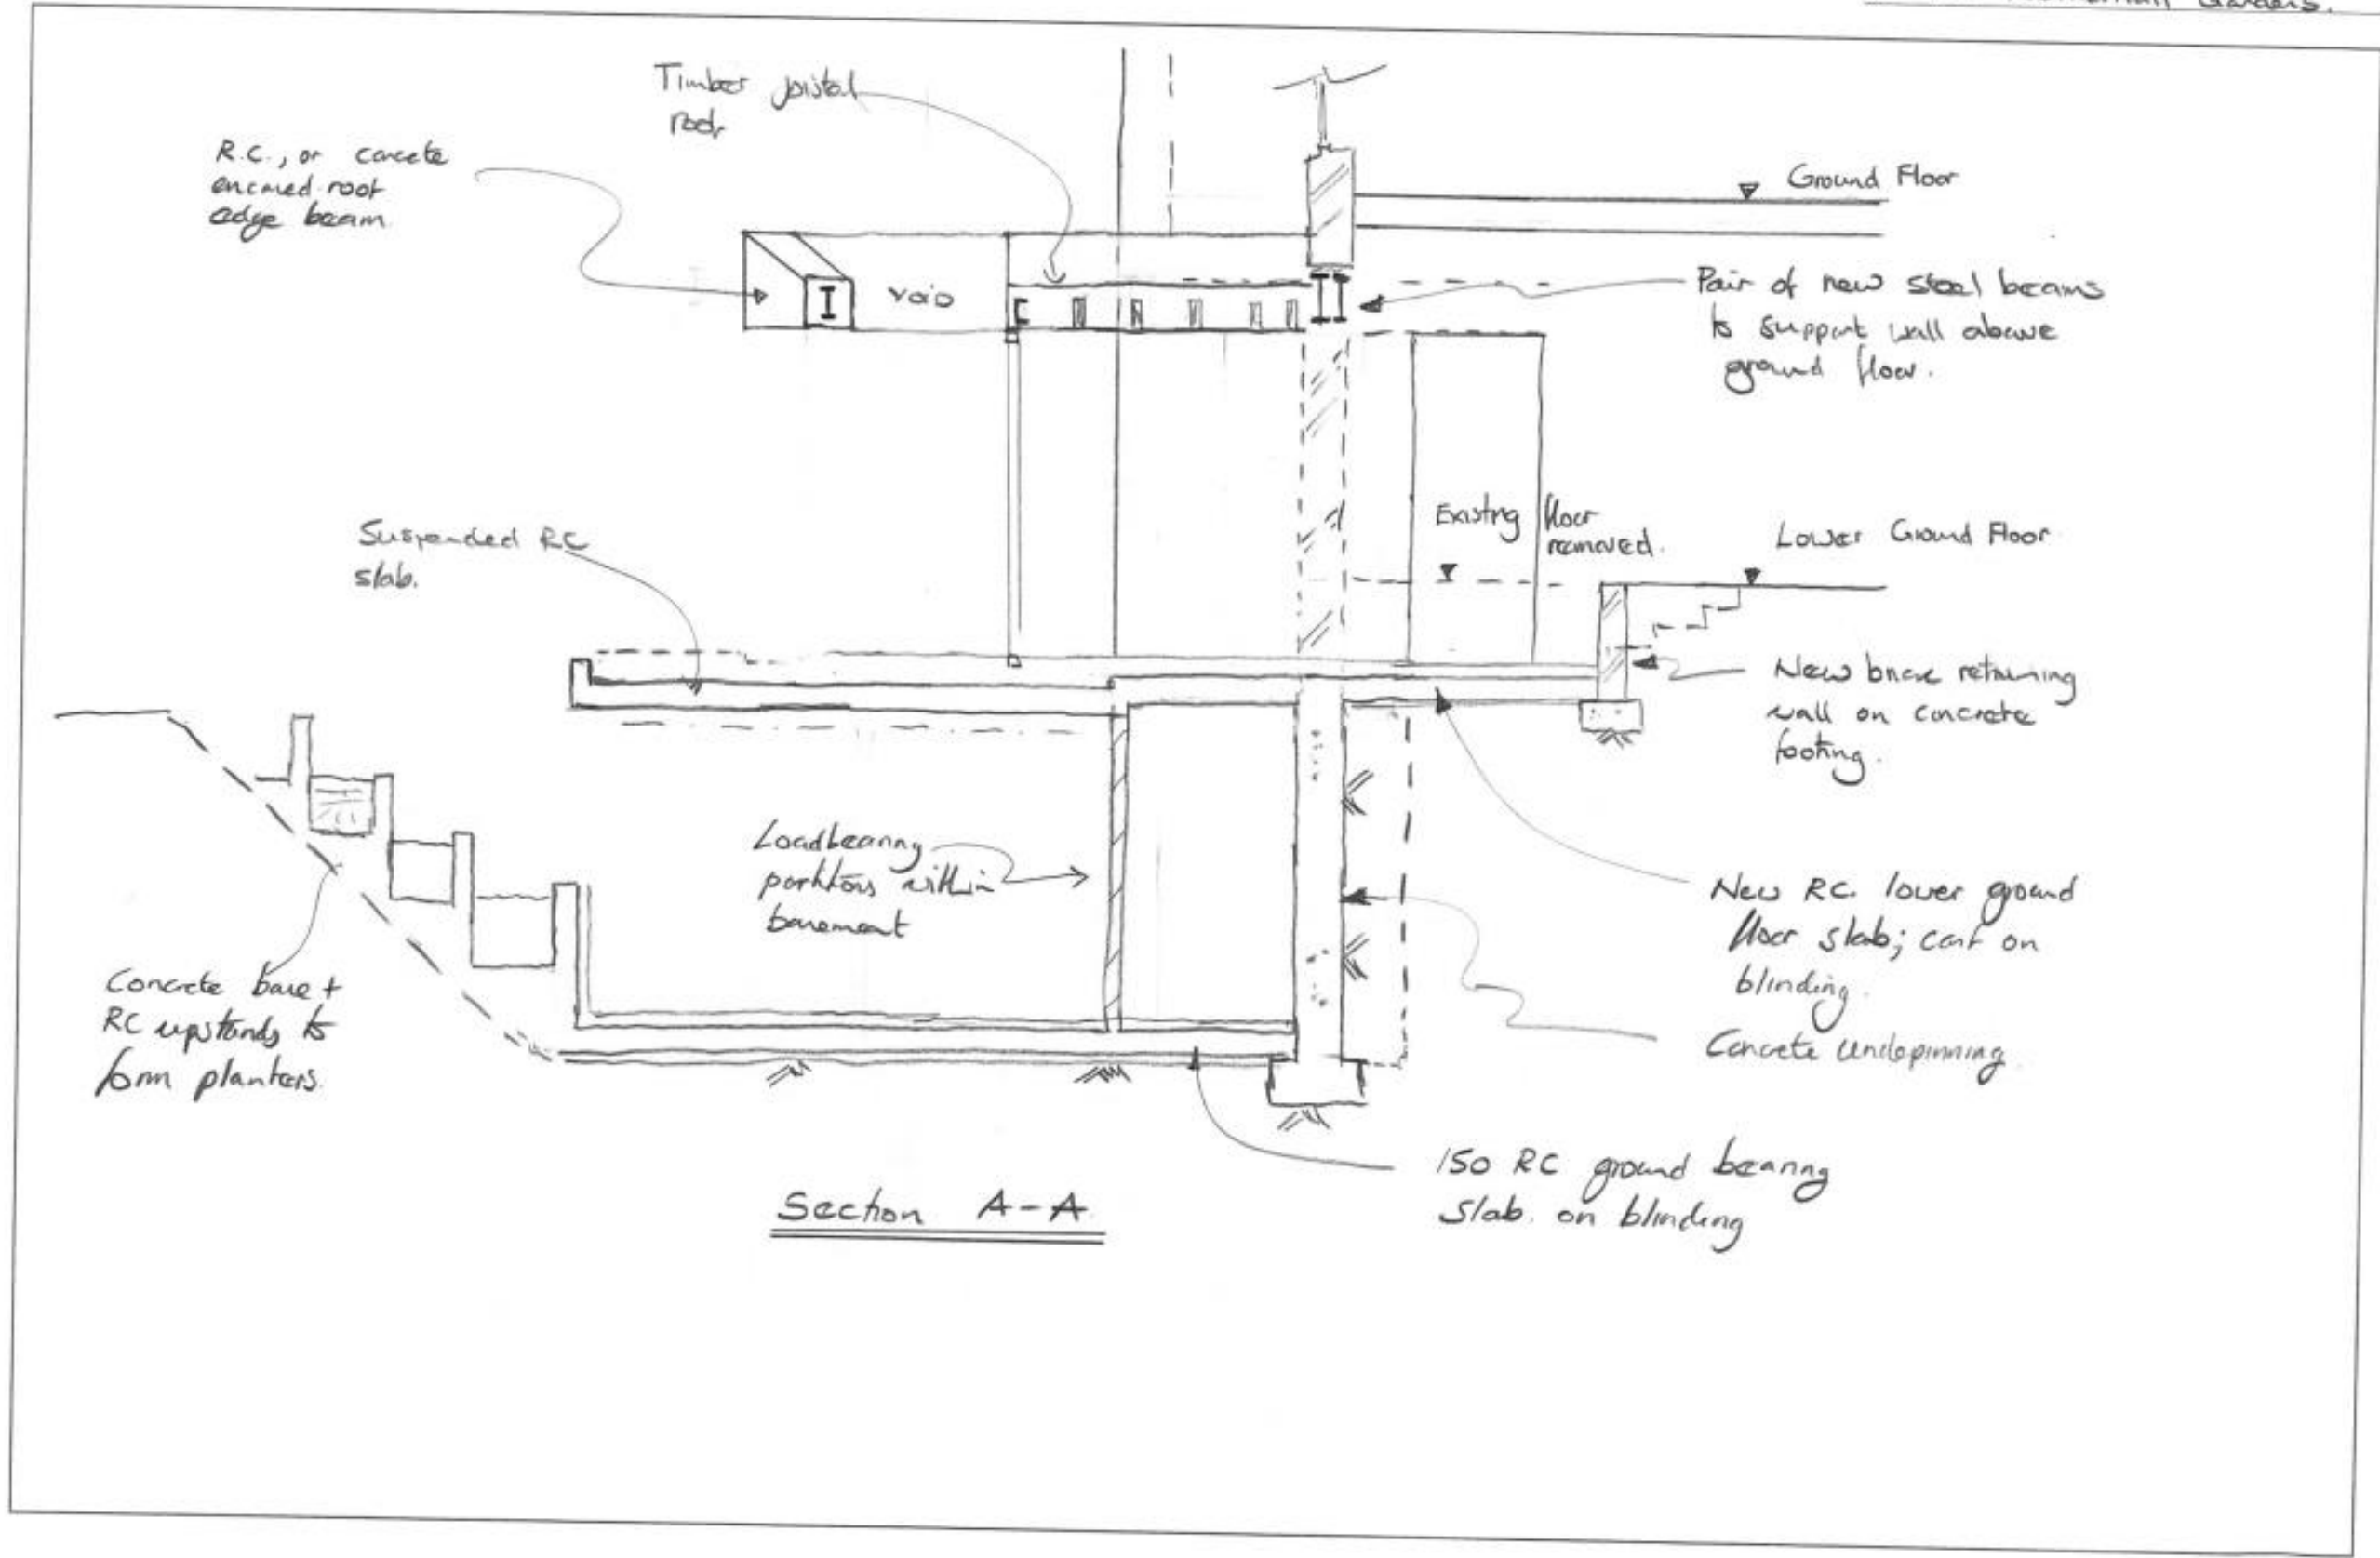 Gardens.
Timber joisted
roof
R.C., or concrete
encased roof
edge beam.
Ground Floor
void
Pair of new steel beams
to support wall above
ground floor.
Suspended RC
slab.
Existing floor
removed.
Lower Ground Floor
New brick retaining
wall on concrete
footing.
Loadbearing
partitions within
basement
New RC. lower ground
floor slab; cast on
blinding.
Concrete base +
RC upstands to
form planters.
Concrete underpinning.
150 RC ground bearing
slab. on blinding
Section A-A